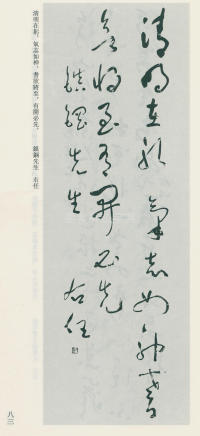 清明在躬氣志如神耆
欲將至有開必先
鎮鋼先生
右任
清明在躬，氣志如神，耆欲將至，有開必先。 鎮鋼先生 右任
八三